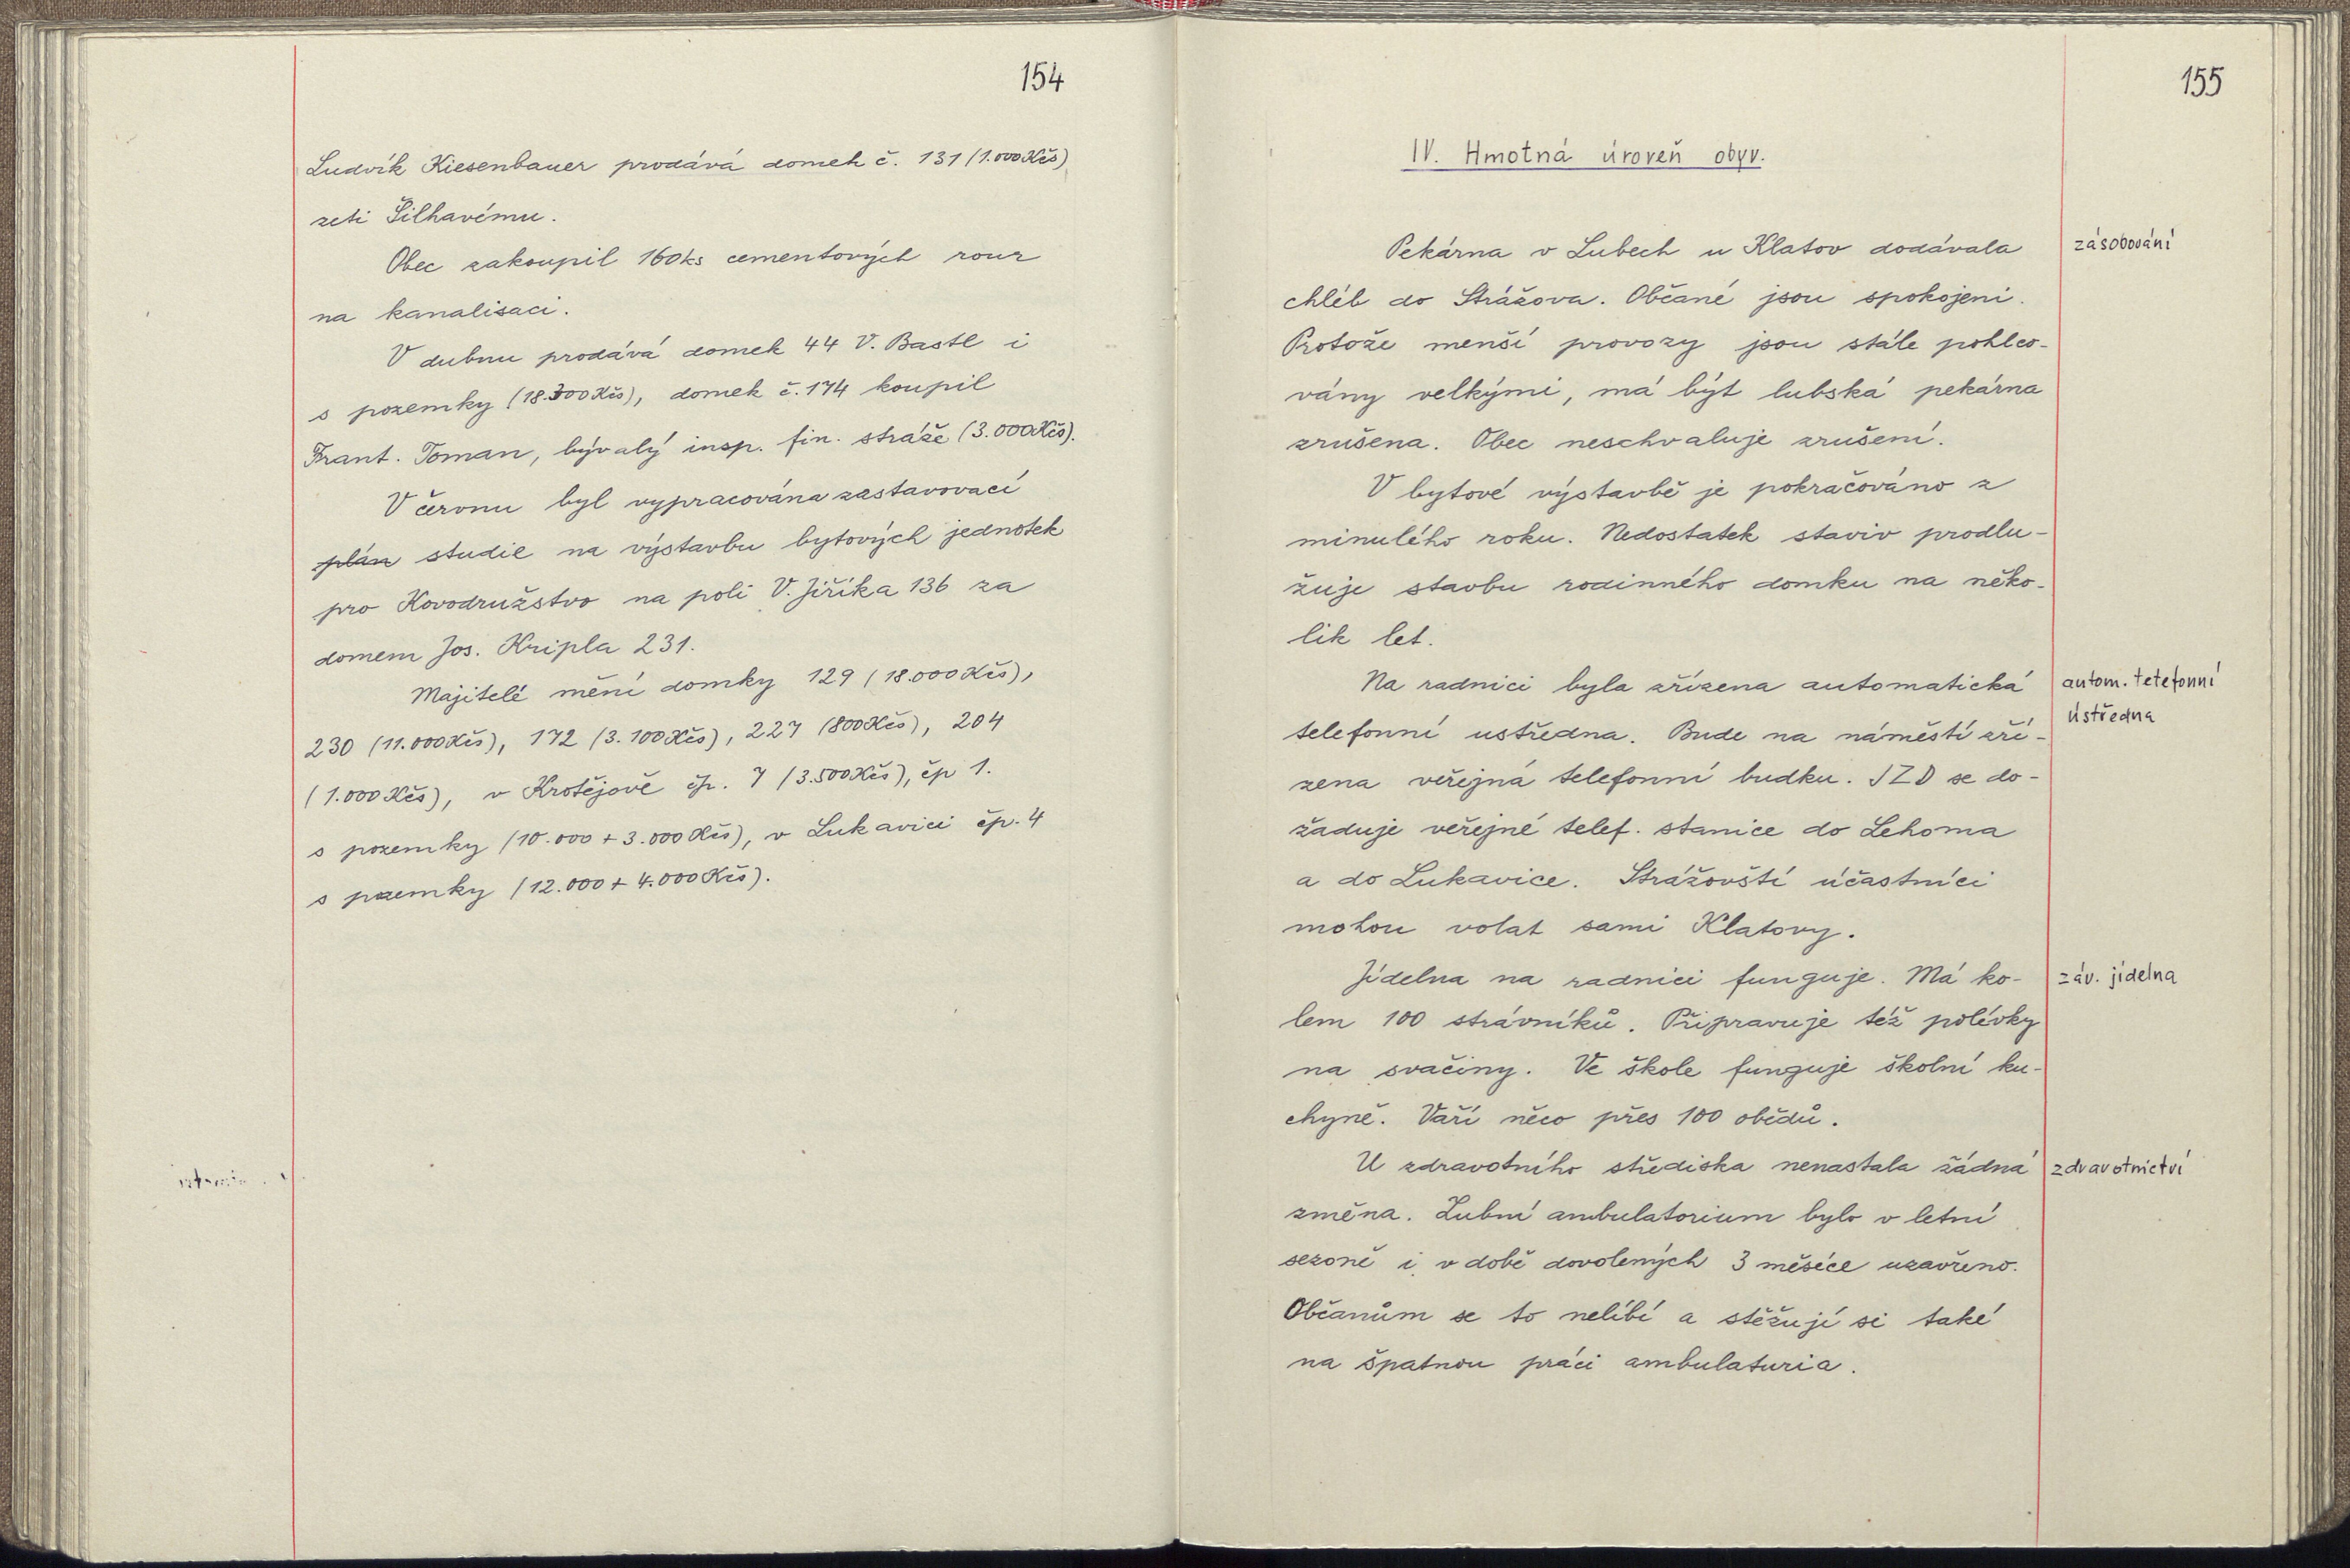 154
Ludvík Kiesenbauer prodává domek č. 131 (1.000 Kčs)
zeti Šilhavému.
Obec zakoupil 160 ks cementových rour
na kanalisaci.
V dubnu prodává domek 44 V. Bastl i
s pozemky (18.300 Kčs), domek č. 174 koupil
Frant. Toman, bývalý insp. fin. stráže (3.000 Kčs).
V červnu byl vypracována zastavovací
plán studie na výstavbu bytových jednotek
pro Kovodružstvo na poli V. Jiříka 136 za
domem Jos. Kripla 231.
Majitelé mění domky 129 (18.000 Kčs),
230 (11.000 Kčs), 172 (3.100 Kčs), 227 (800 Kčs), 204
(1.000 Kčs), v Krotějově čp. 7 (3.500 Kčs), čp 1.
s pozemky (10.000 + 3.000 Kčs), v Lukavici čp. 4
s pzemky (12.000 + 4.000 Kčs).
155
IV. Hmotná úroveň obyv.
Pekárna v Lubech u Klatov dodávala
zásobování
chléb do Strážova. Občané jsou spokojeni.
Protože menší provozy jsou stále pohlco-
vány velkými, má být lubská pekárna
zrušena. Obec neschvaluje zrušení.
V bytové výstavbě je pokračováno z
minulého roku. Nedostatek staviv prodlu-
žuje stavbu rodinného domku na něko-
lik let.
Na radnici byla zřízena automatická
autom. telefonní
telefonní ustředna. Bude na náměstí zří-
ústředna
zena veřejná telefonní budku. JZD se do-
žaduje veřejné telef. stanice do Lehoma
a do Lukavice. Strážovští účastníci
mohou volat sami Klatovy.
Jídelna na radnici funguje. Má ko-
záv. jídelna
lem 100 strávníků. Připravuje též polévky
na svačiny. Ve škole funguje školní ku-
chyně. Vaří něco přes 100 obědů.
U zdravotního střediska nenastala žádná
zdravotnictví
změna. Zubní ambulatorium bylo v letní
sezoně i v době dovolených 3 měsíce uzavřeno.
Občanům se to nelíbí a stěžují si také
na špatnou práci ambulaturia.